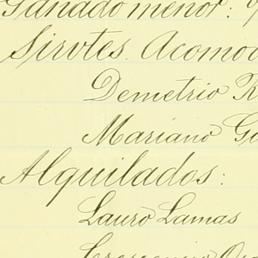 Ganado menor:
Sirvtes. Acomod
Demetrio R
Mariano Go
Alquilados:
Lauro Lamas